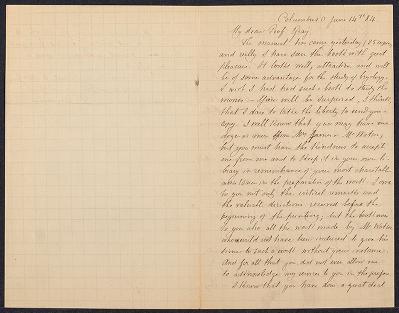 Columbus O June 14th 84.
My dear Prof Gray
The manual has come yesterday (25 copies)
and really I have seen the book with great
pleasure. It looks well, attractive and will
be of some advantage for the study of bryology.
I wish I had had such a book to study the
mosses. You will be surprised, I think,
that I dare to take the liberty to send you a
copy. I well know that you may have one
dozen or more from Mr
but you must have the kindness to accept
one from me and to keep it in your own li-
brary in remembrance of your most charitable
assistance in the preparation of the work. I owe
to you not only the critical remarks and
the valuable directions received before the
beginning of the printing, but the book owes
to you also all the work made by Mr Watson
who would not have been induced to give his
time to such a work without your instance.
And for all that you did not even allow me
to acknowledge my services to you in the preface
I know that you have done a great deal